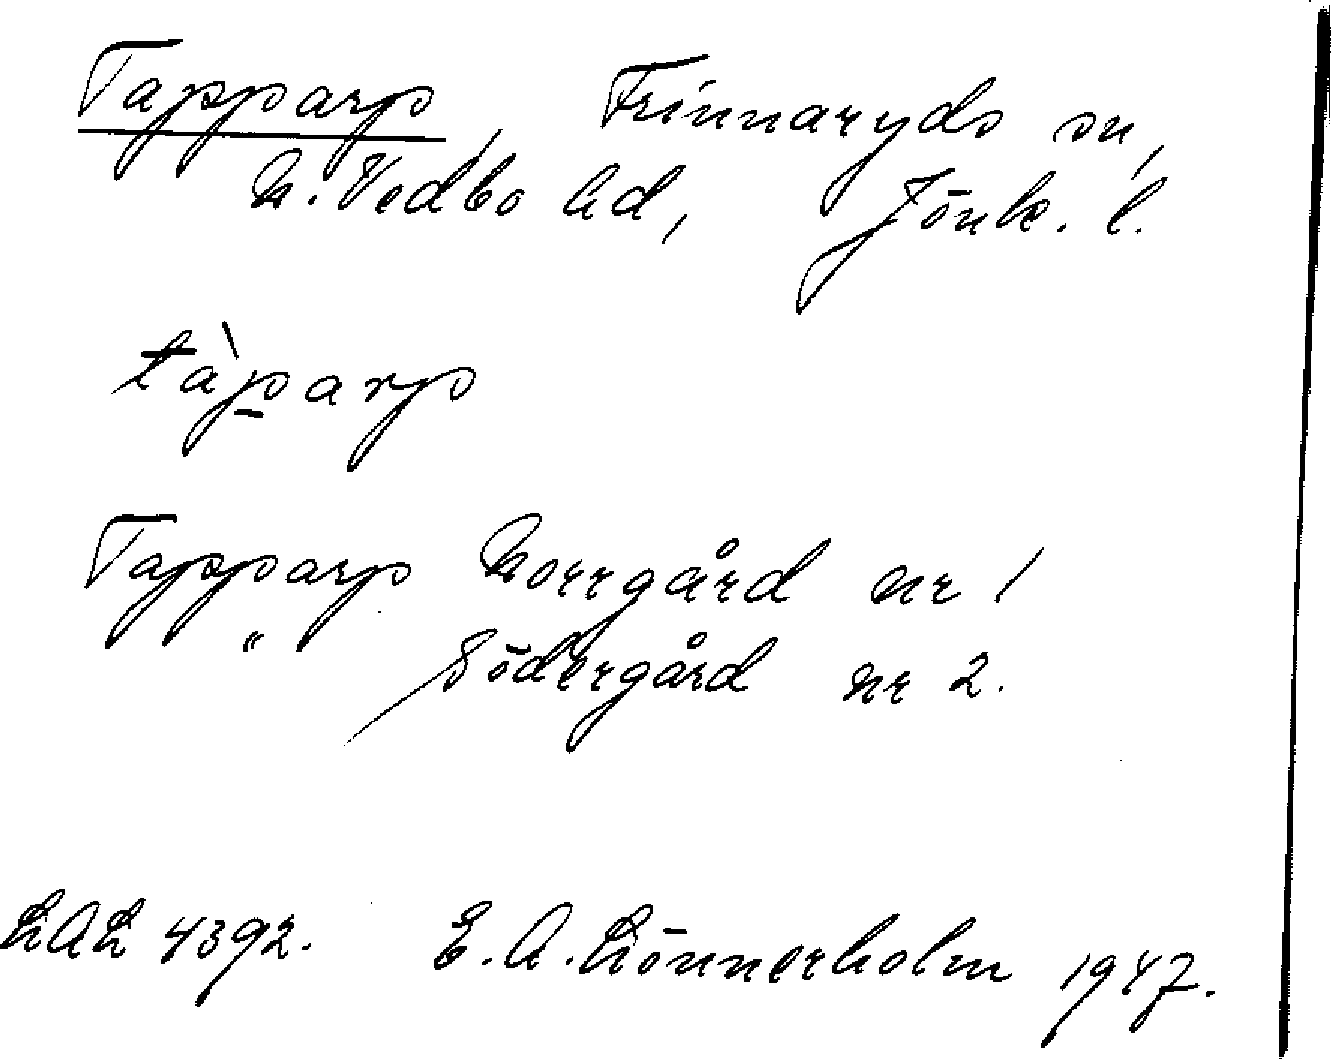 Tapparp, Frinnaryds sn,
N. Vedbo hd, Jönk. l.
tàp̱arp
Tapparp Norrgård nr 1
" Södergård nr 2.
LAL 4392. E. A. Lönnerholm 1947.